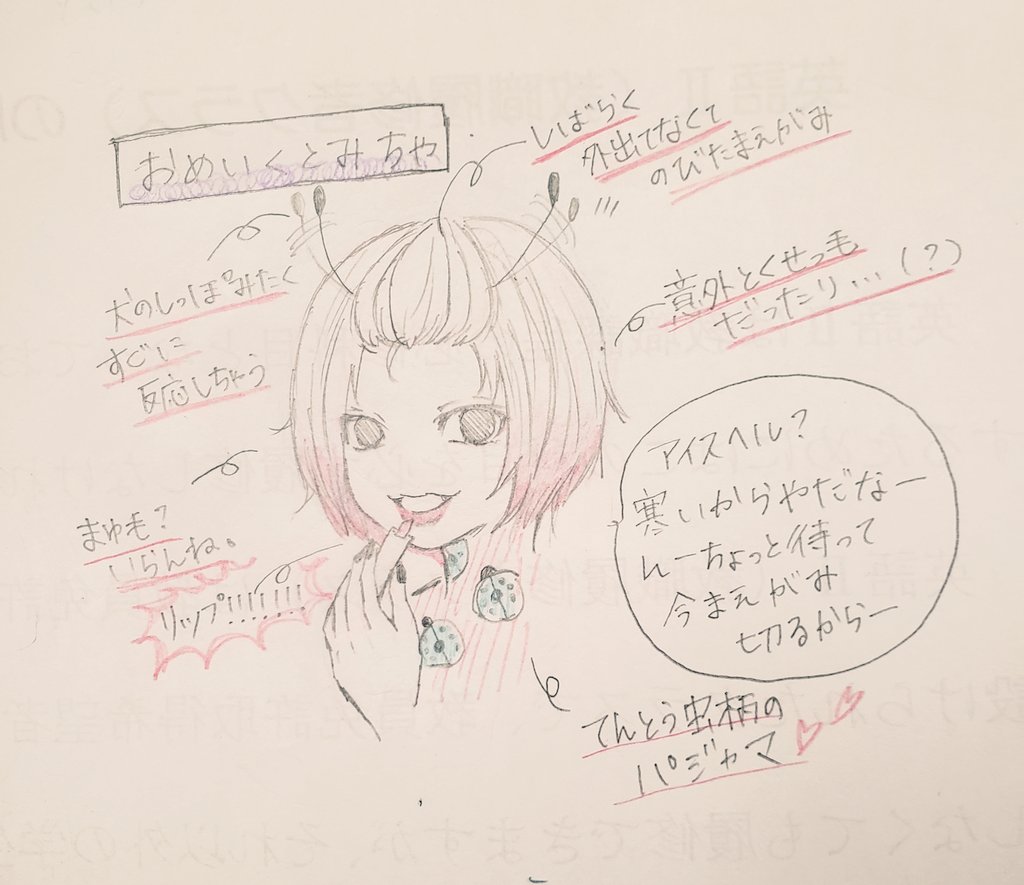 おめいくとみちゃ
しばらく
外出てなくて
のびたまえがみ
犬のしっぽみたく
すぐに
反応しちゃう
意外とくせっ毛
だったり…(？)
まゆ毛？
いらんね。
リップ!!!!!!!
アイスヘル？
寒いからやだなー
んーちょっと待って
今まえがみ
切るからー
てんとう虫柄の
パジャマ